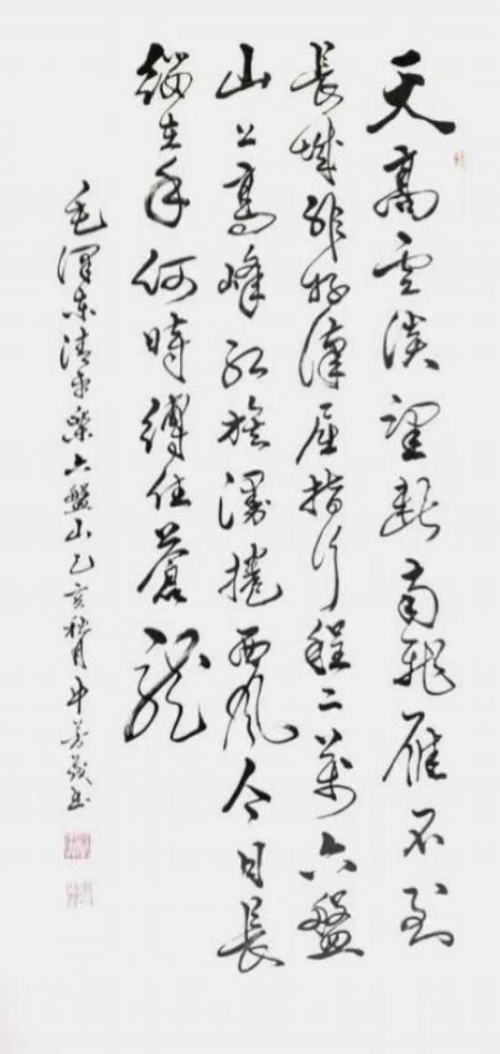 天高雲淡望斷南飛雁不到
長城非好漢屈指行程二萬六盤
山上高峰紅旗漫捲西風今日長
纓在手何時縛住蒼龍
毛澤東清平樂六盤山乙亥秋月書